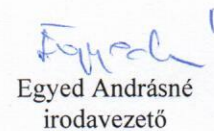 Egyed
Egyed Andrásné
irodavezető